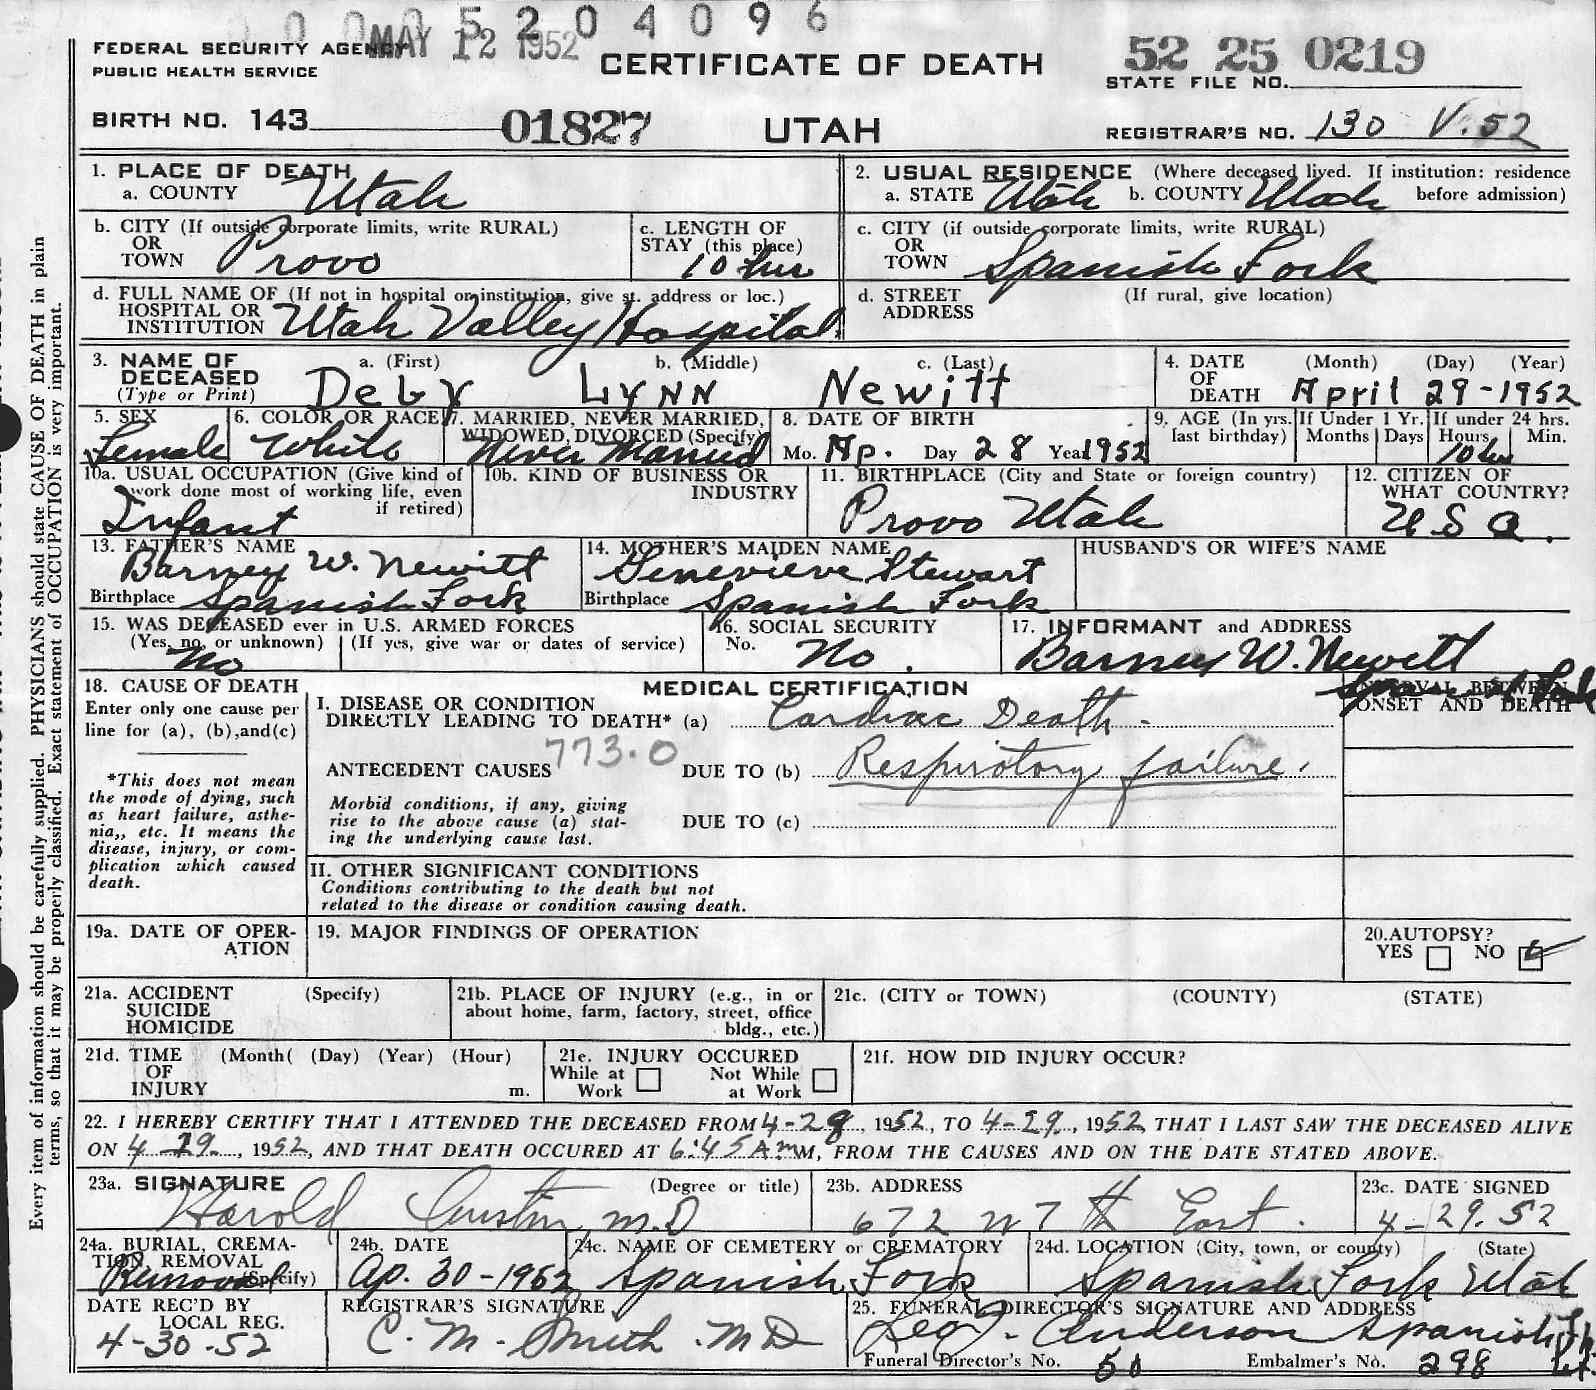 0 0 0 5 2 0 4 0 9 6
MAY 12 1952
FEDERAL SECURITY AGENCY
PUBLIC HEALTH SERVICE
CERTIFICATE OF DEATH
52 25 0219
STATE FILE NO.
BIRTH NO. 143 01827
UTAH
REGISTRAR'S NO. 130 V.52
Every item of information should be carefully supplied. PHYSICIANS should state CAUSE OF DEATH in plain
terms, so that it may be properly classified. Exact statement of OCCUPATION is very important.
1. PLACE OF DEATH
a. COUNTY Utah
2. USUAL RESIDENCE (Where deceased lived. If institution: residence
a. STATE Utah b. COUNTY Utah before admission)
b. CITY (If outside corporate limits, write RURAL)
OR
TOWN Provo
c. LENGTH OF
STAY (this place)
10 hrs
c. CITY (if outside corporate limits, write RURAL)
OR
TOWN Spanish Fork
d. FULL NAME OF (If not in hospital or institution, give st. address or loc.)
HOSPITAL OR
INSTITUTION Utah Valley Hospital
d. STREET (If rural, give location)
ADDRESS
3. NAME OF a. (First) b. (Middle) c. (Last)
DECEASED
(Type or Print) Deby Lynn Newitt
4. DATE (Month) (Day) (Year)
OF
DEATH April 29-1952
5. SEX
Female
6. COLOR OR RACE
White
7. MARRIED, NEVER MARRIED,
WIDOWED, DIVORCED (Specify)
Never Married
8. DATE OF BIRTH
Mo. Ap. Day 28 Year 1952
9. AGE (In yrs. If Under 1 Yr. If under 24 hrs.
last birthday) Months Days Hours Min.
10 hrs
10a. USUAL OCCUPATION (Give kind of
work done most of working life, even
if retired)
Infant
10b. KIND OF BUSINESS OR
INDUSTRY
11. BIRTHPLACE (City and State or foreign country)
Provo Utah
12. CITIZEN OF
WHAT COUNTRY?
USA.
13. FATHER'S NAME
Barney W. Newitt
Birthplace Spanish Fork
14. MOTHER'S MAIDEN NAME
Genevieve Stewart
Birthplace Spanish Fork
HUSBAND'S OR WIFE'S NAME
15. WAS DECEASED ever in U.S. ARMED FORCES
(Yes, no, or unknown) (If yes, give war or dates of service)
No
16. SOCIAL SECURITY
No. No.
17. INFORMANT and ADDRESS
Barney W. Newitt
18. CAUSE OF DEATH
Enter only one cause per
line for (a), (b),and(c)
*This does not mean
the mode of dying, such
as heart failure, asthe-
nia,, etc. It means the
disease, injury, or com-
plication which caused
death.
MEDICAL CERTIFICATION
INTERVAL BETWEEN
ONSET AND DEATH
I. DISEASE OR CONDITION
DIRECTLY LEADING TO DEATH* (a) Cardiac Death -
773.0
ANTECEDENT CAUSES DUE TO (b) Respiratory failure.
Morbid conditions, if any, giving
rise to the above cause (a) stat-
ing the underlying cause last.
DUE TO (c)
II. OTHER SIGNIFICANT CONDITIONS
Conditions contributing to the death but not
related to the disease or condition causing death.
19a. DATE OF OPER-
ATION
19. MAJOR FINDINGS OF OPERATION
20.AUTOPSY?
YES NO
21a. ACCIDENT (Specify)
SUICIDE
HOMICIDE
21b. PLACE OF INJURY (e.g., in or
about home, farm, factory, street, office
bldg., etc.)
21c. (CITY or TOWN) (COUNTY) (STATE)
21d. TIME (Month( (Day) (Year) (Hour)
OF
INJURY m.
21e. INJURY OCCURED
While at Not While
Work at Work
21f. HOW DID INJURY OCCUR?
22. I HEREBY CERTIFY THAT I ATTENDED THE DECEASED FROM 4-28, 1952, TO 4-29, 1952 THAT I LAST SAW THE DECEASED ALIVE
ON 4-29, 1952, AND THAT DEATH OCCURED AT 6:45 AmM, FROM THE CAUSES AND ON THE DATE STATED ABOVE.
23a. SIGNATURE (Degree or title)
Harold Austin, M.D
23b. ADDRESS
672 N 7th East.
23c. DATE SIGNED
4-29.52
24a. BURIAL, CREMA-
TION, REMOVAL
(Specify)
Removal
24b. DATE
Ap. 30-1952
24c. NAME OF CEMETERY or CREMATORY
Spanish Fork
24d. LOCATION (City, town, or county) (State)
Spanish Fork Utah
DATE REC'D BY
LOCAL REG.
4-30-52
REGISTRAR'S SIGNATURE
C. M. Smith. MD
25. FUNERAL DIRECTOR'S SIGNATURE AND ADDRESS
Anderson Spanish
Funeral Director's No. 50 Embalmer's No. 298